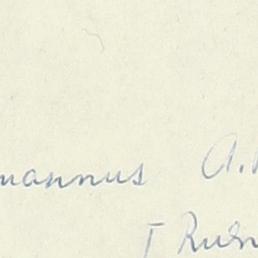 mannus A.
I Run